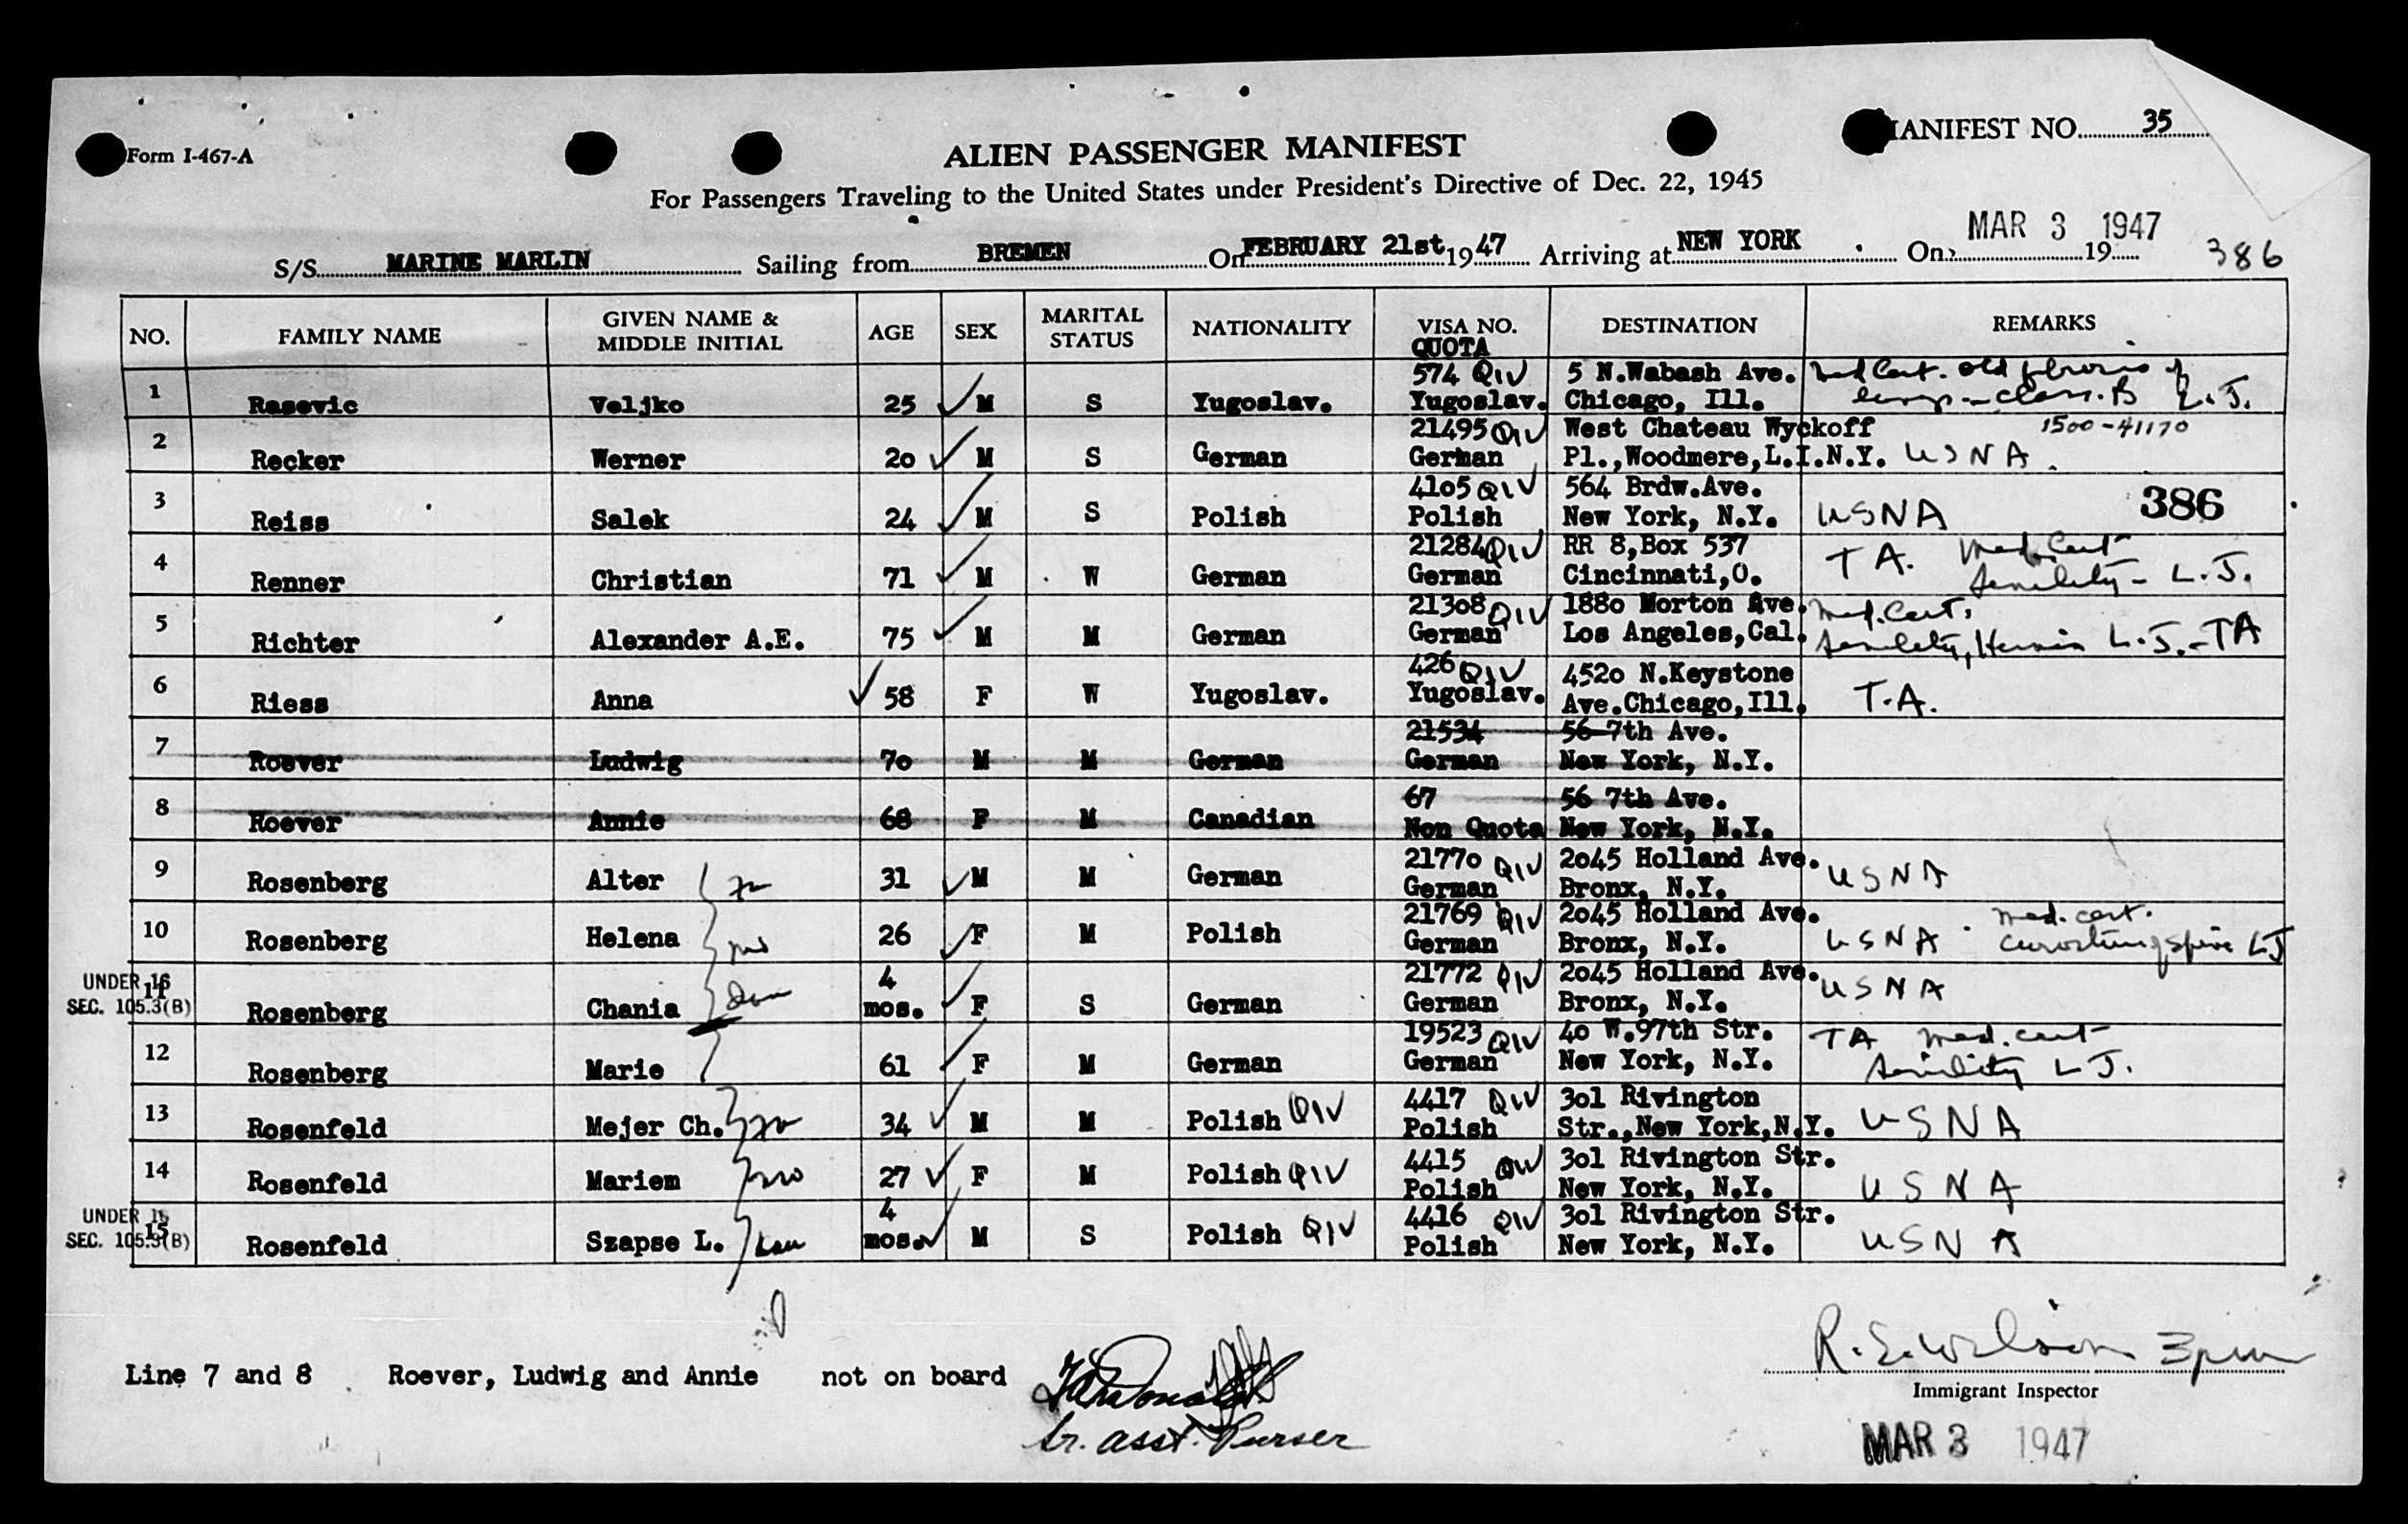 Form I-467-A
ALIEN PASSENGER MANIFEST
MANIFEST NO. 35
For Passengers Traveling to the United States under President's Directive of Dec. 22, 1945
S/S MARINE MARLIN Sailing from BREMEN On FEBRUARY 21st 1947 Arriving at NEW YORK On MAR 3 1947 19
386
NO. FAMILY NAME GIVEN NAME & MIDDLE INITIAL AGE SEX MARITAL STATUS NATIONALITY VISA NO. QUOTA DESTINATION REMARKS
1 Rasevic Veljko 25 M S Yugoslav. 574 QIV Yugoslav. 5 N.Wabash Ave. Chicago, Ill. Med Cert. old class. B L.J.
2 Recker Werner 20 M S German 21495 QIV German West Chateau Wyckoff Pl.,Woodmere,L.I.N.Y. 1500-41170 USNA
3 Reiss Salek 24 M S Polish 4105 QIV Polish 564 Brdw.Ave. New York, N.Y. USNA 386
4 Renner Christian 71 M W German 21284 QIV German RR 8,Box 537 Cincinnati,O. TA. Med. Cert senility - L.J.
5 Richter Alexander A.E. 75 M M German 21308 QIV German 1880 Morton Ave. Los Angeles,Cal. Med. Cert. senility, Hernia L.J.-TA
6 Riess Anna 58 F W Yugoslav. 426 QIV Yugoslav. 4520 N.Keystone Ave.Chicago,Ill. T.A.
7 Roever Ludwig 70 M M German 21534 German 56 7th Ave. New York, N.Y.
8 Roever Annie 68 F M Canadian 67 Non Quota 56 7th Ave. New York, N.Y.
9 Rosenberg Alter 31 M M German 21770 QIV German 2045 Holland Ave. Bronx, N.Y. USNA
10 Rosenberg Helena 26 F M Polish 21769 QIV German 2045 Holland Ave. Bronx, N.Y. USNA med. cert. spine LJ
UNDER 16 SEC. 105.3(B) 11 Rosenberg Chania 4 mos. F S German 21772 QIV German 2045 Holland Ave. Bronx, N.Y. USNA
12 Rosenberg Marie 61 F M German 19523 QIV German 40 W.97th Str. New York, N.Y. TA med. cert senility LJ.
13 Rosenfeld Mejer Ch. 34 M M Polish QIV 4417 QIV Polish 301 Rivington Str.,New York,N.Y. USNA
14 Rosenfeld Mariem 27 F M Polish QIV 4415 QIV Polish 301 Rivington Str. New York, N.Y. USNA
UNDER 16 SEC. 105.3(B) 15 Rosenfeld Szapse L. 4 mos. M S Polish QIV 4416 QIV Polish 301 Rivington Str. New York, N.Y. USNA
Line 7 and 8 Roever, Ludwig and Annie not on board
Sr. asst. Purser
R. E. Wilson 3pm
Immigrant Inspector
MAR 3 1947